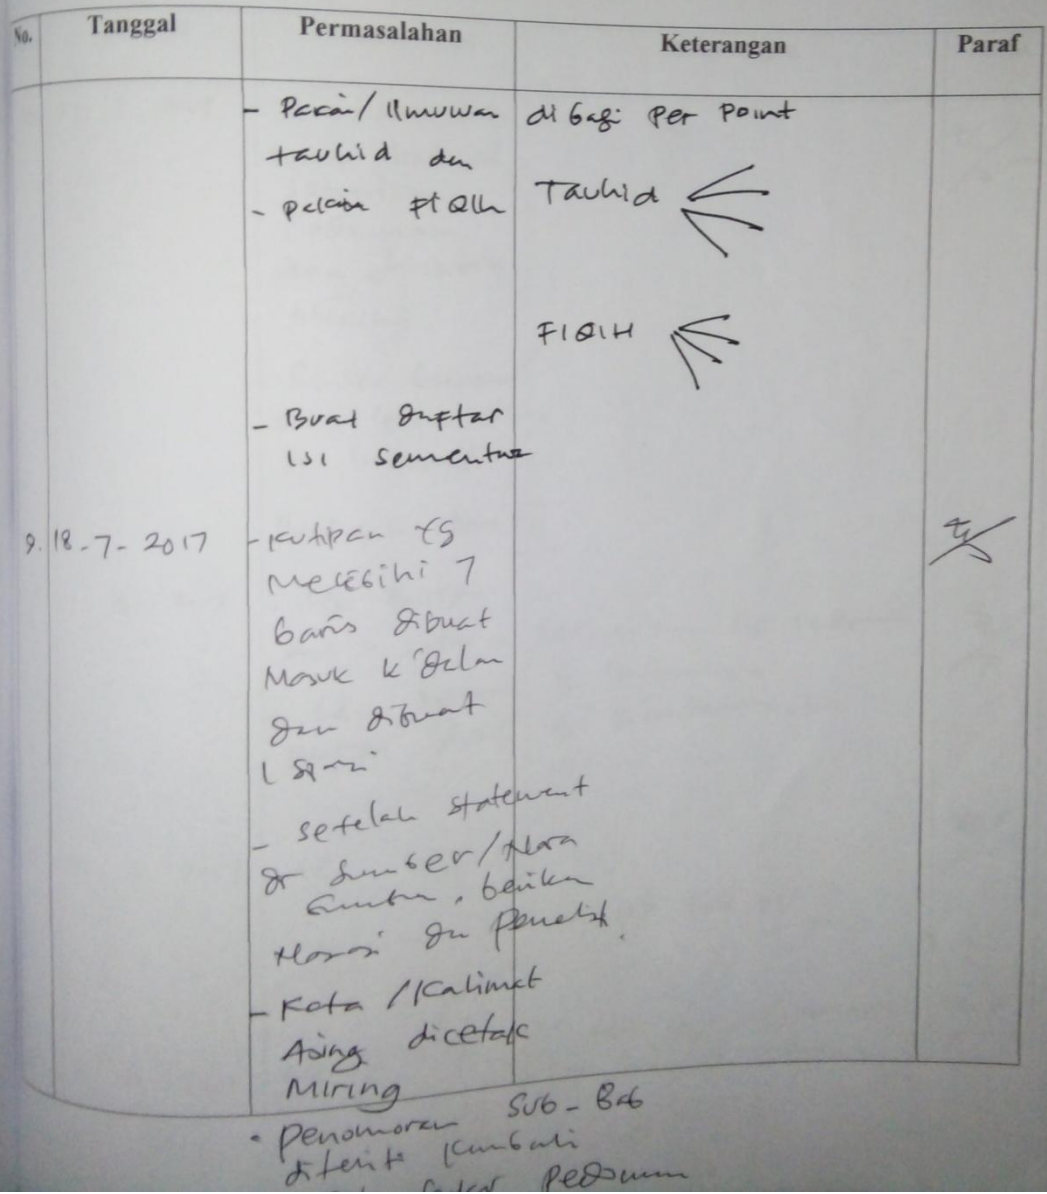 No. Tanggal Permasalahan Keterangan Paraf
- Pakar/Ilmuwan di bagi Per Point
tauhid dan
- pakar FIQIh Tauhid
FIQIH
- Buat daftar
isi sementara
9. 18-7-2017 - Kutipan yg
Melebihi 7
baris dibuat
Masuk k'dalam
dan dibuat
1 spasi
- setelah statement
dr Sumber/Nara
Sumber, berikan
Narasi dr Peneliti.
- Kata/Kalimat
Asing dicetak
Miring
• Penomoran Sub-Bab
diteliti kembali
Pedoman